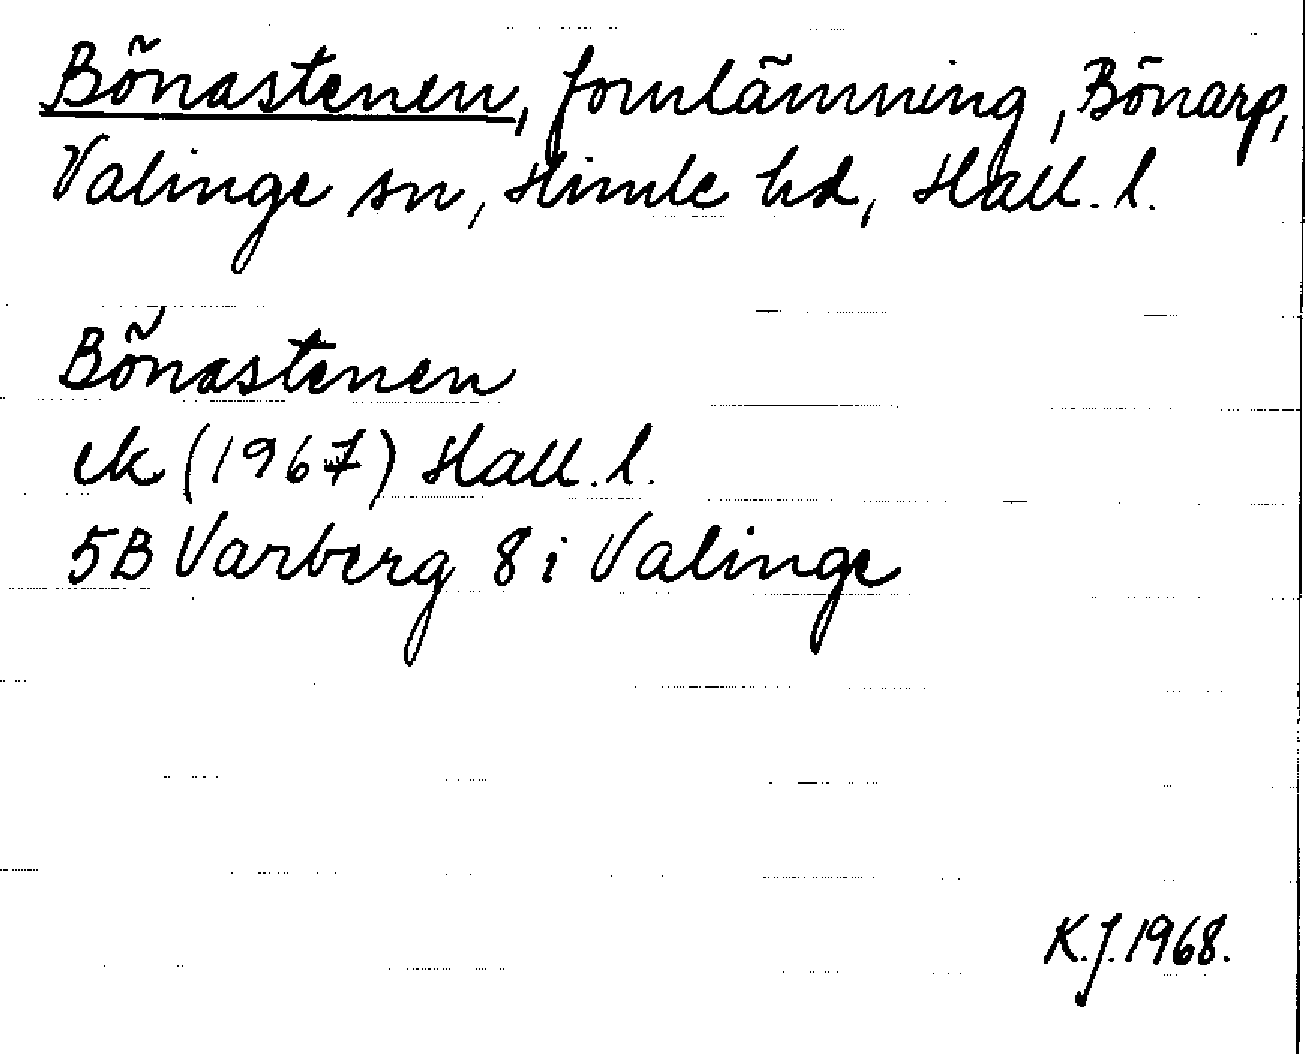 Bönastenen, fornlämning, Bönarp,
Valinge sn, Himle hd, Hall. l.
Bönastenen
ek (1967) Hall. l.
5B Varberg 8 i Valinge
K.J. 1968.